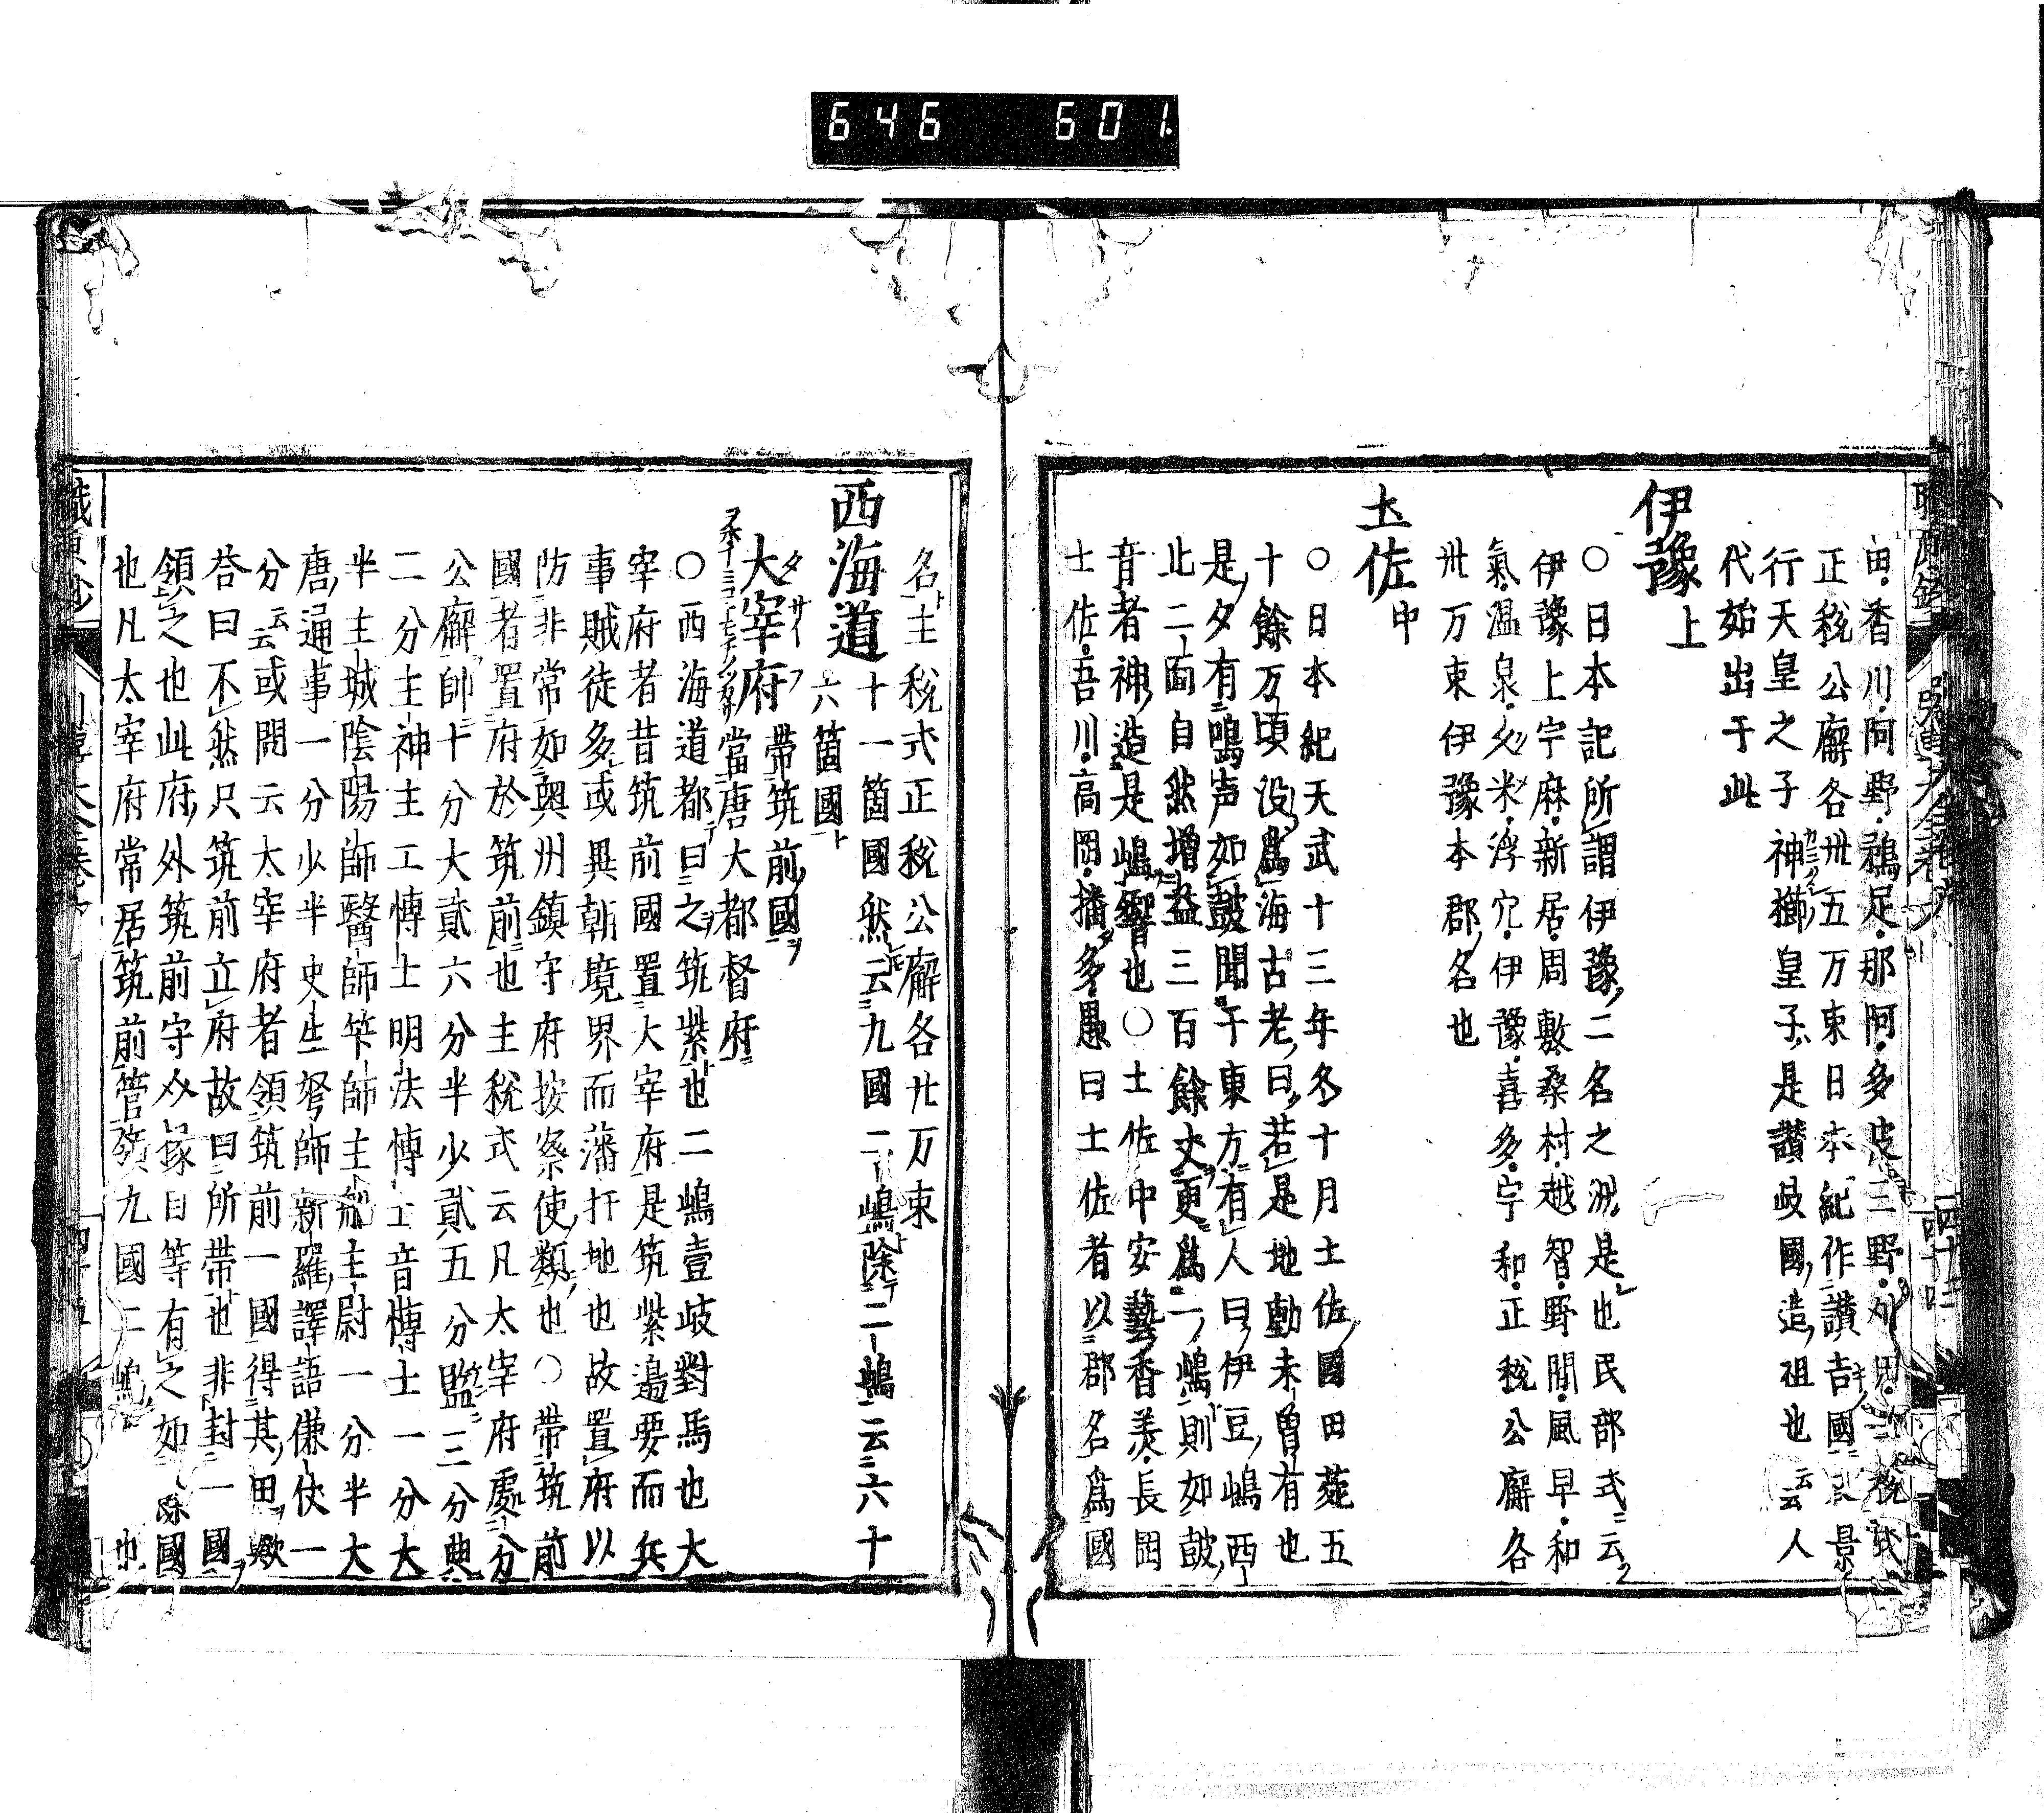 646 601.
田香川阿野鵜足那阿多度三野
正税公廨各卅五万束日本紀作讃吉國景
行天皇之子神櫛皇子是讃岐國造祖也云云人
代始出于此
伊豫上
○日本記所謂伊豫二名之洲是也民部式云
伊豫上宇麻新居周敷桑村越智野間風早和
氣温泉久米浮穴伊豫喜多宇和正税公廨各
卅万束伊豫本郡名也
土佐中
○日本紀天武十三年冬十月土佐國田菀五
十餘万頃没爲海古老曰若是地動未曽有也
是夕有鳴声如鼓聞于東方有人曰伊豆嶋西
北二面自然増益三百餘丈更爲一嶋則如鼓
音者神造是嶋響也○土佐中安藝香美長岡
土佐吾川高岡播多愚曰土佐者以郡名爲國
名主税式正税公廨各廿万束
西海道十一箇國然云九國二嶋除二嶋云六十
六箇國
大宰府帶筑前國
當唐大都督府
○西海道都曰之筑紫也二嶋壹岐對馬也大
宰府者昔筑前國置大宰府是筑紫邉要而兵
事賊徒多或異朝境界而藩扞地也故置府以
防非常如奥州鎮守府按察使類也○帶筑前
國者置府於筑前也主税式云凡太宰府處分
公廨帥十分大貳六分半少貳五分監三分典
二分主神主工博士明法博士音博士一分大
半主城陰陽師醫師竿師主舩主尉一分半大
唐通事一分少半史生弩師新羅譯語傔仗一
分云云或問云太宰府者領筑前一國得其田歟
荅曰不然只筑前立府故曰所帶也非封一國
領之也此府外筑前守介掾目等有之如餘國
也凡太宰府常居筑前管領九國二嶋也